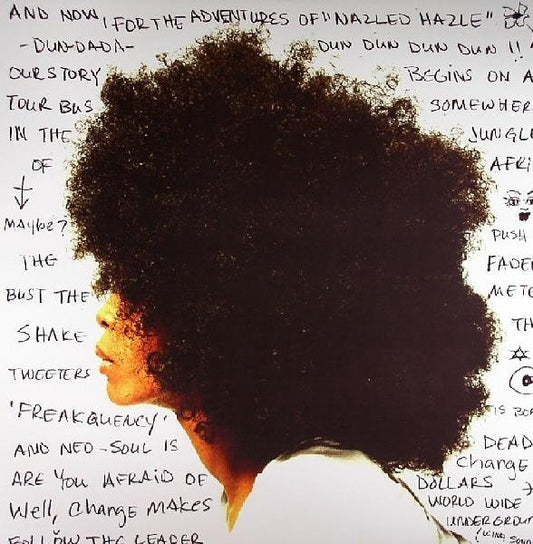 AND NOW, FOR THE ADVENTURES OF "NAZLED HAZLE"
-DUN-DADA- DUN DUN DUN DUN !!
OUR STORY BEGINS ON A
TOUR BUS SOMEWHER
IN THE JUNGLE
OF AFRI
MAYBE?
PUSH
THE FADE
BUST THE METE
SHAKE TH
TWEETERS
'FREAKQUENCY' IS BO
AND NEO-SOUL IS DEAD
ARE YOU AFRAID OF Change
DOLLARS
Well, Change MAKES WORLD WIDE
UNDERGROUN
FOLLOW THE LEADER